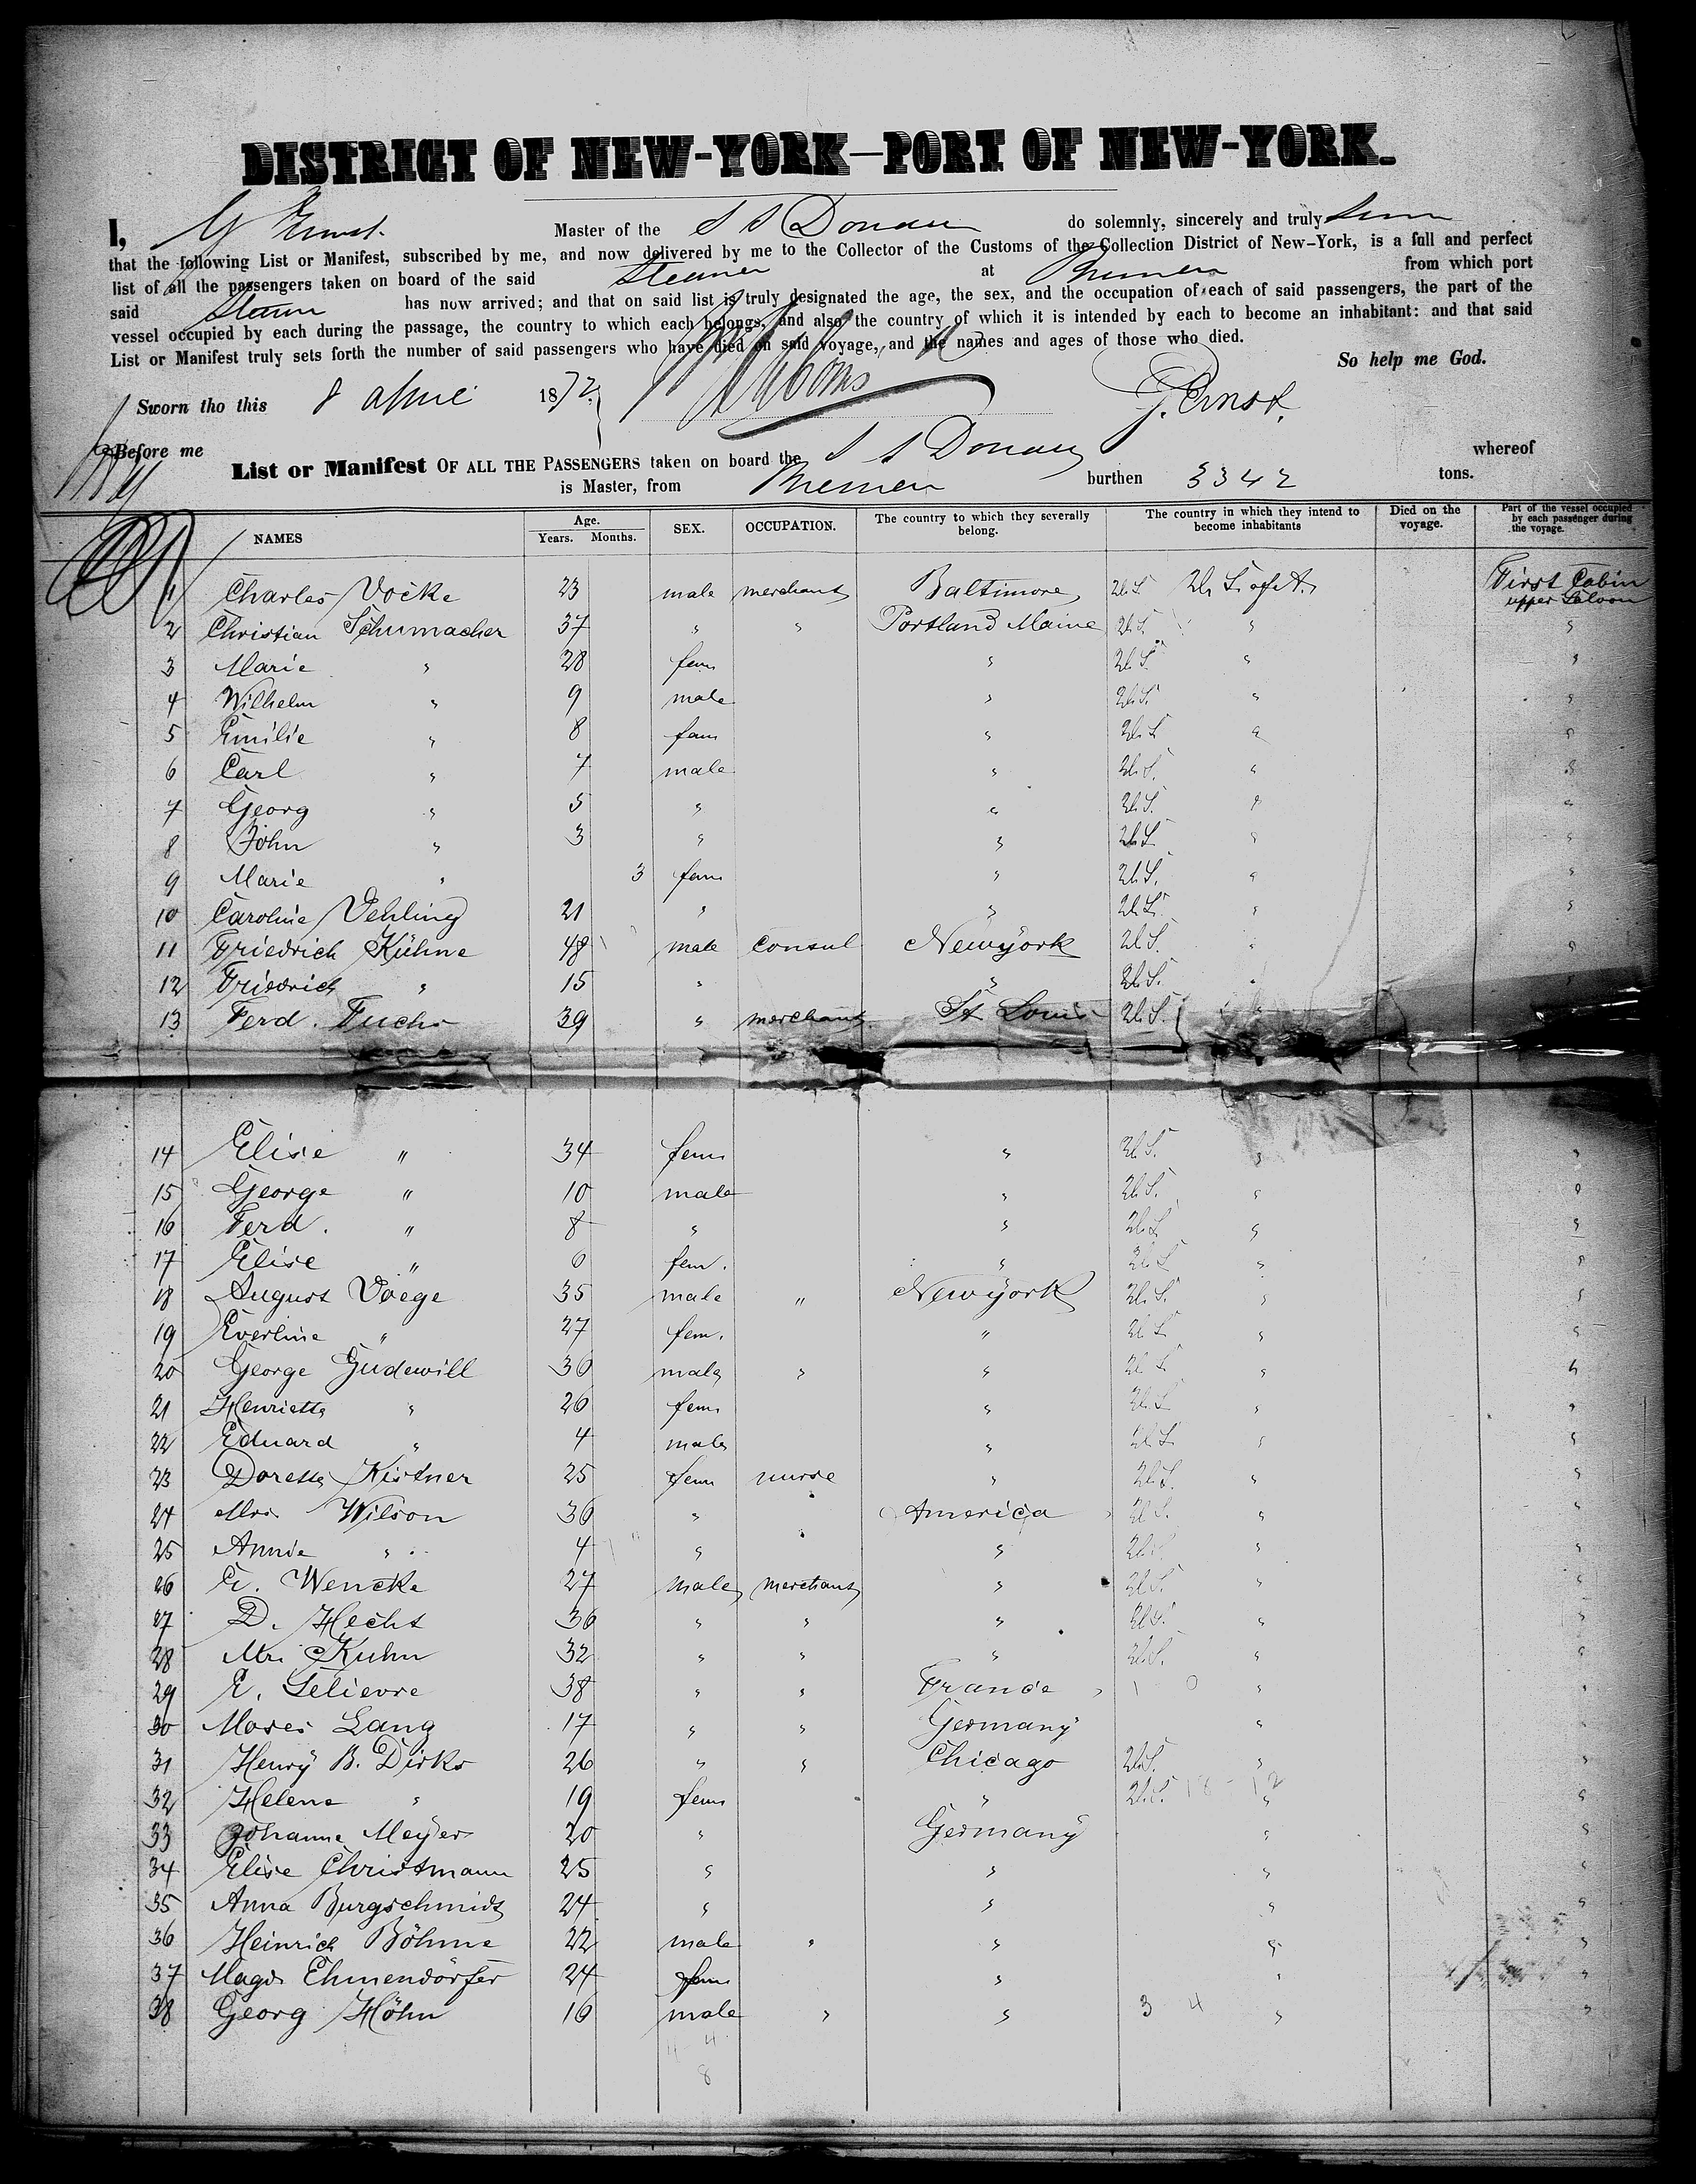 DISTRICT OF NEW-YORK—PORT OF NEW-YORK.
I, G Ernst. Master of the S S Donau do solemnly, sincerely and truly
that the following List or Manifest, subscribed by me, and now delivered by me to the Collector of the Customs of the Collection District of New-York, is a full and perfect
list of all the passengers taken on board of the said Steamer at Bremen from which port
said Steamer has now arrived; and that on said list is truly designated the age, the sex, and the occupation of each of said passengers, the part of the
vessel occupied by each during the passage, the country to which each belongs, and also the country of which it is intended by each to become an inhabitant: and that said
List or Manifest truly sets forth the number of said passengers who have died on said voyage, and the names and ages of those who died.
So help me God.
Sworn tho this 8 April 1872. G. Ernst.
Before me
List or Manifest OF ALL THE PASSENGERS taken on board the S S Donau whereof
is Master, from Bremen burthen 3342 tons.
NAMES Age. Years. Months. SEX. OCCUPATION. The country to which they severally belong. The country in which they intend to become inhabitants Died on the voyage. Part of the vessel occupied by each passenger during the voyage.
1 Charles Vocke 23 male merchant Baltimore U.S. U. S. of A. First Cabin upper Saloon
2 Christian Schumacher 37 " " Portland Maine U.S. " "
3 Marie " 28 fem " U.S. " "
4 Wilhelm " 9 male " U.S. " "
5 Emilie " 8 fem " U.S. " "
6 Carl " 7 male " U.S. " "
7 Georg " 5 " " U.S. " "
8 John " 3 " " U.S. " "
9 Marie " 3 fem " U.S. " "
10 Caroline Vehling 21 " " U.S. " "
11 Friedrich Kühne 48 male Consul Newyork U.S. " "
12 Friedrich " 15 " " U.S. " "
13 Ferd. Fuchs 39 " merchant St Louis U.S. "
14 Elise " 34 fem " U.S. " "
15 George " 10 male " U.S. " "
16 Ferd. " 8 " " U.S. " "
17 Elise " 6 fem. " U.S. " "
18 August Voege 35 male " Newyork U.S. " "
19 Everline " 27 fem. " U.S. " "
20 George Gudewill 36 male " " U.S. " "
21 Henrietta " 26 fem " U.S. " "
22 Eduard " 4 male " U.S. " "
23 Doretta Kistner 25 fem nurse " U.S. " "
24 Mrs. Wilson 36 " America U.S. " "
25 Annie " 4 " " U.S. " "
26 E. Wencke 27 male merchant " U.S. " "
27 D. Hecht 36 " " " U.S. " "
28 Mr. Kuhn 32 " " " U.S. " "
29 E. Lelievre 38 " " France " "
30 Moses Lang 17 " " Germany " "
31 Henry B. Dirks 26 " " Chicago U.S. " "
32 Helene " 19 fem " U.S. " "
33 Johanne Meyer 20 " Germany " "
34 Elise Christmann 25 " " " "
35 Anna Burgschmidt 24 " " " "
36 Heinrich Böhme 22 male " " " "
37 Magd. Ehmendörfer 24 fem " " "
38 Georg Höhn 16 male " " 3 4 " "
4 4
8